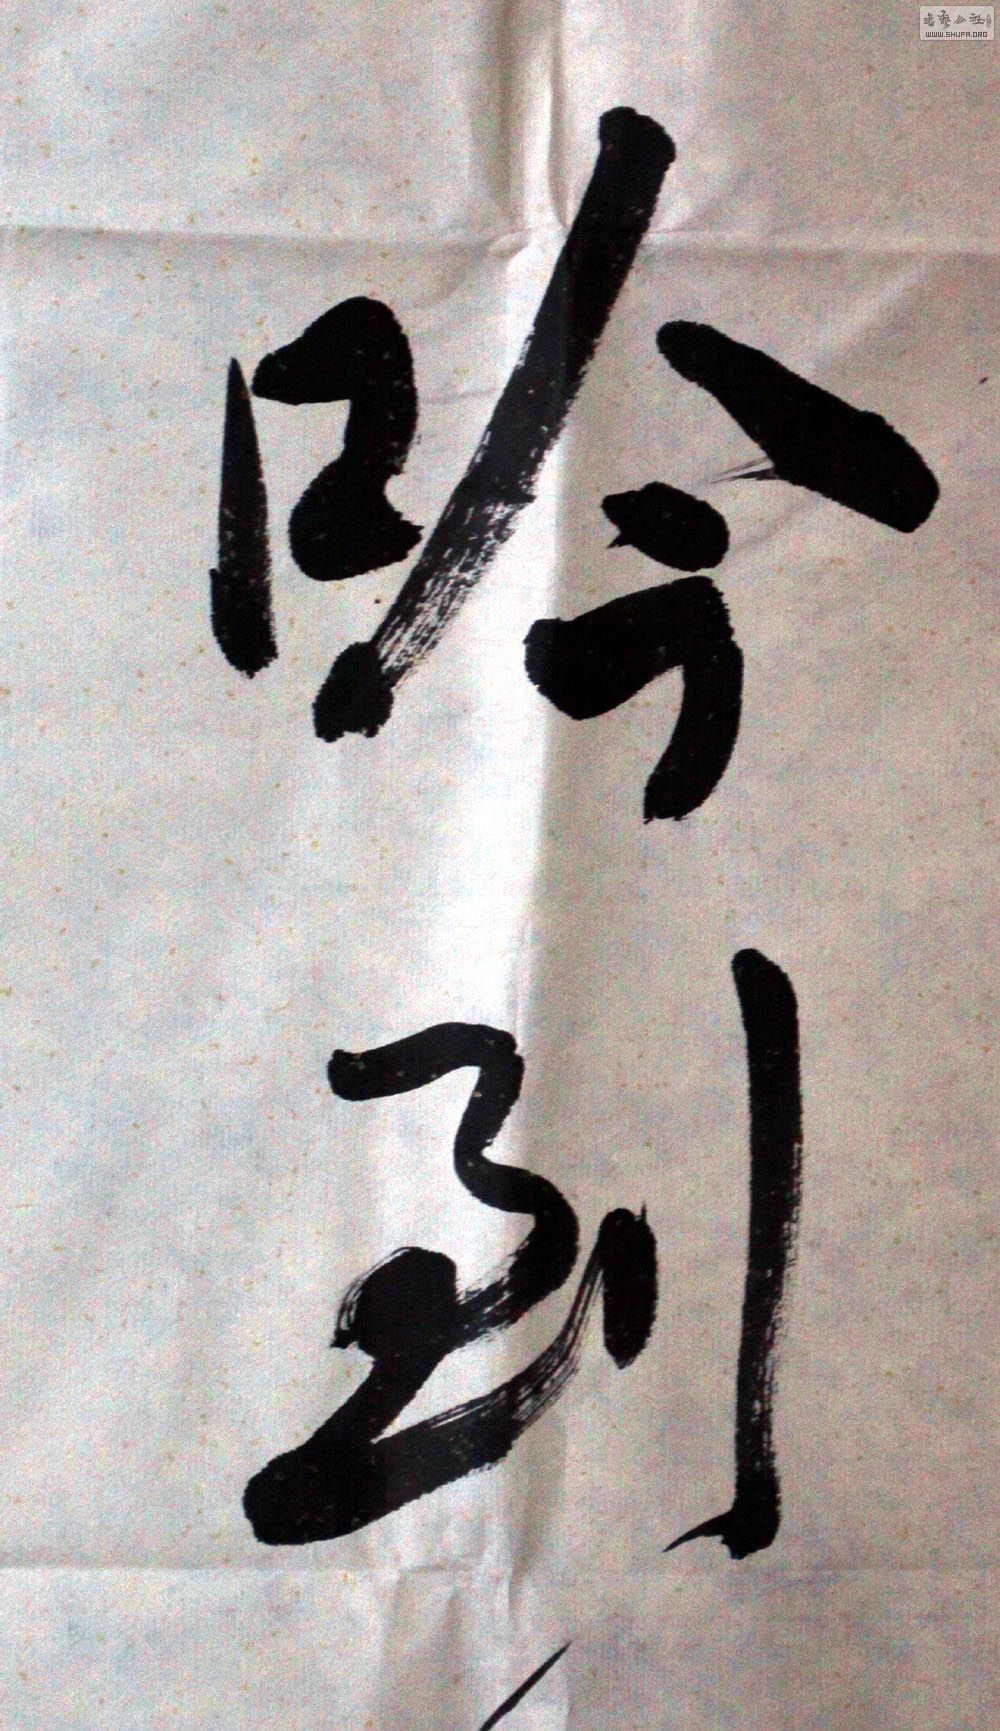 吟到
书艺公社
WWW.SHUFA.ORG